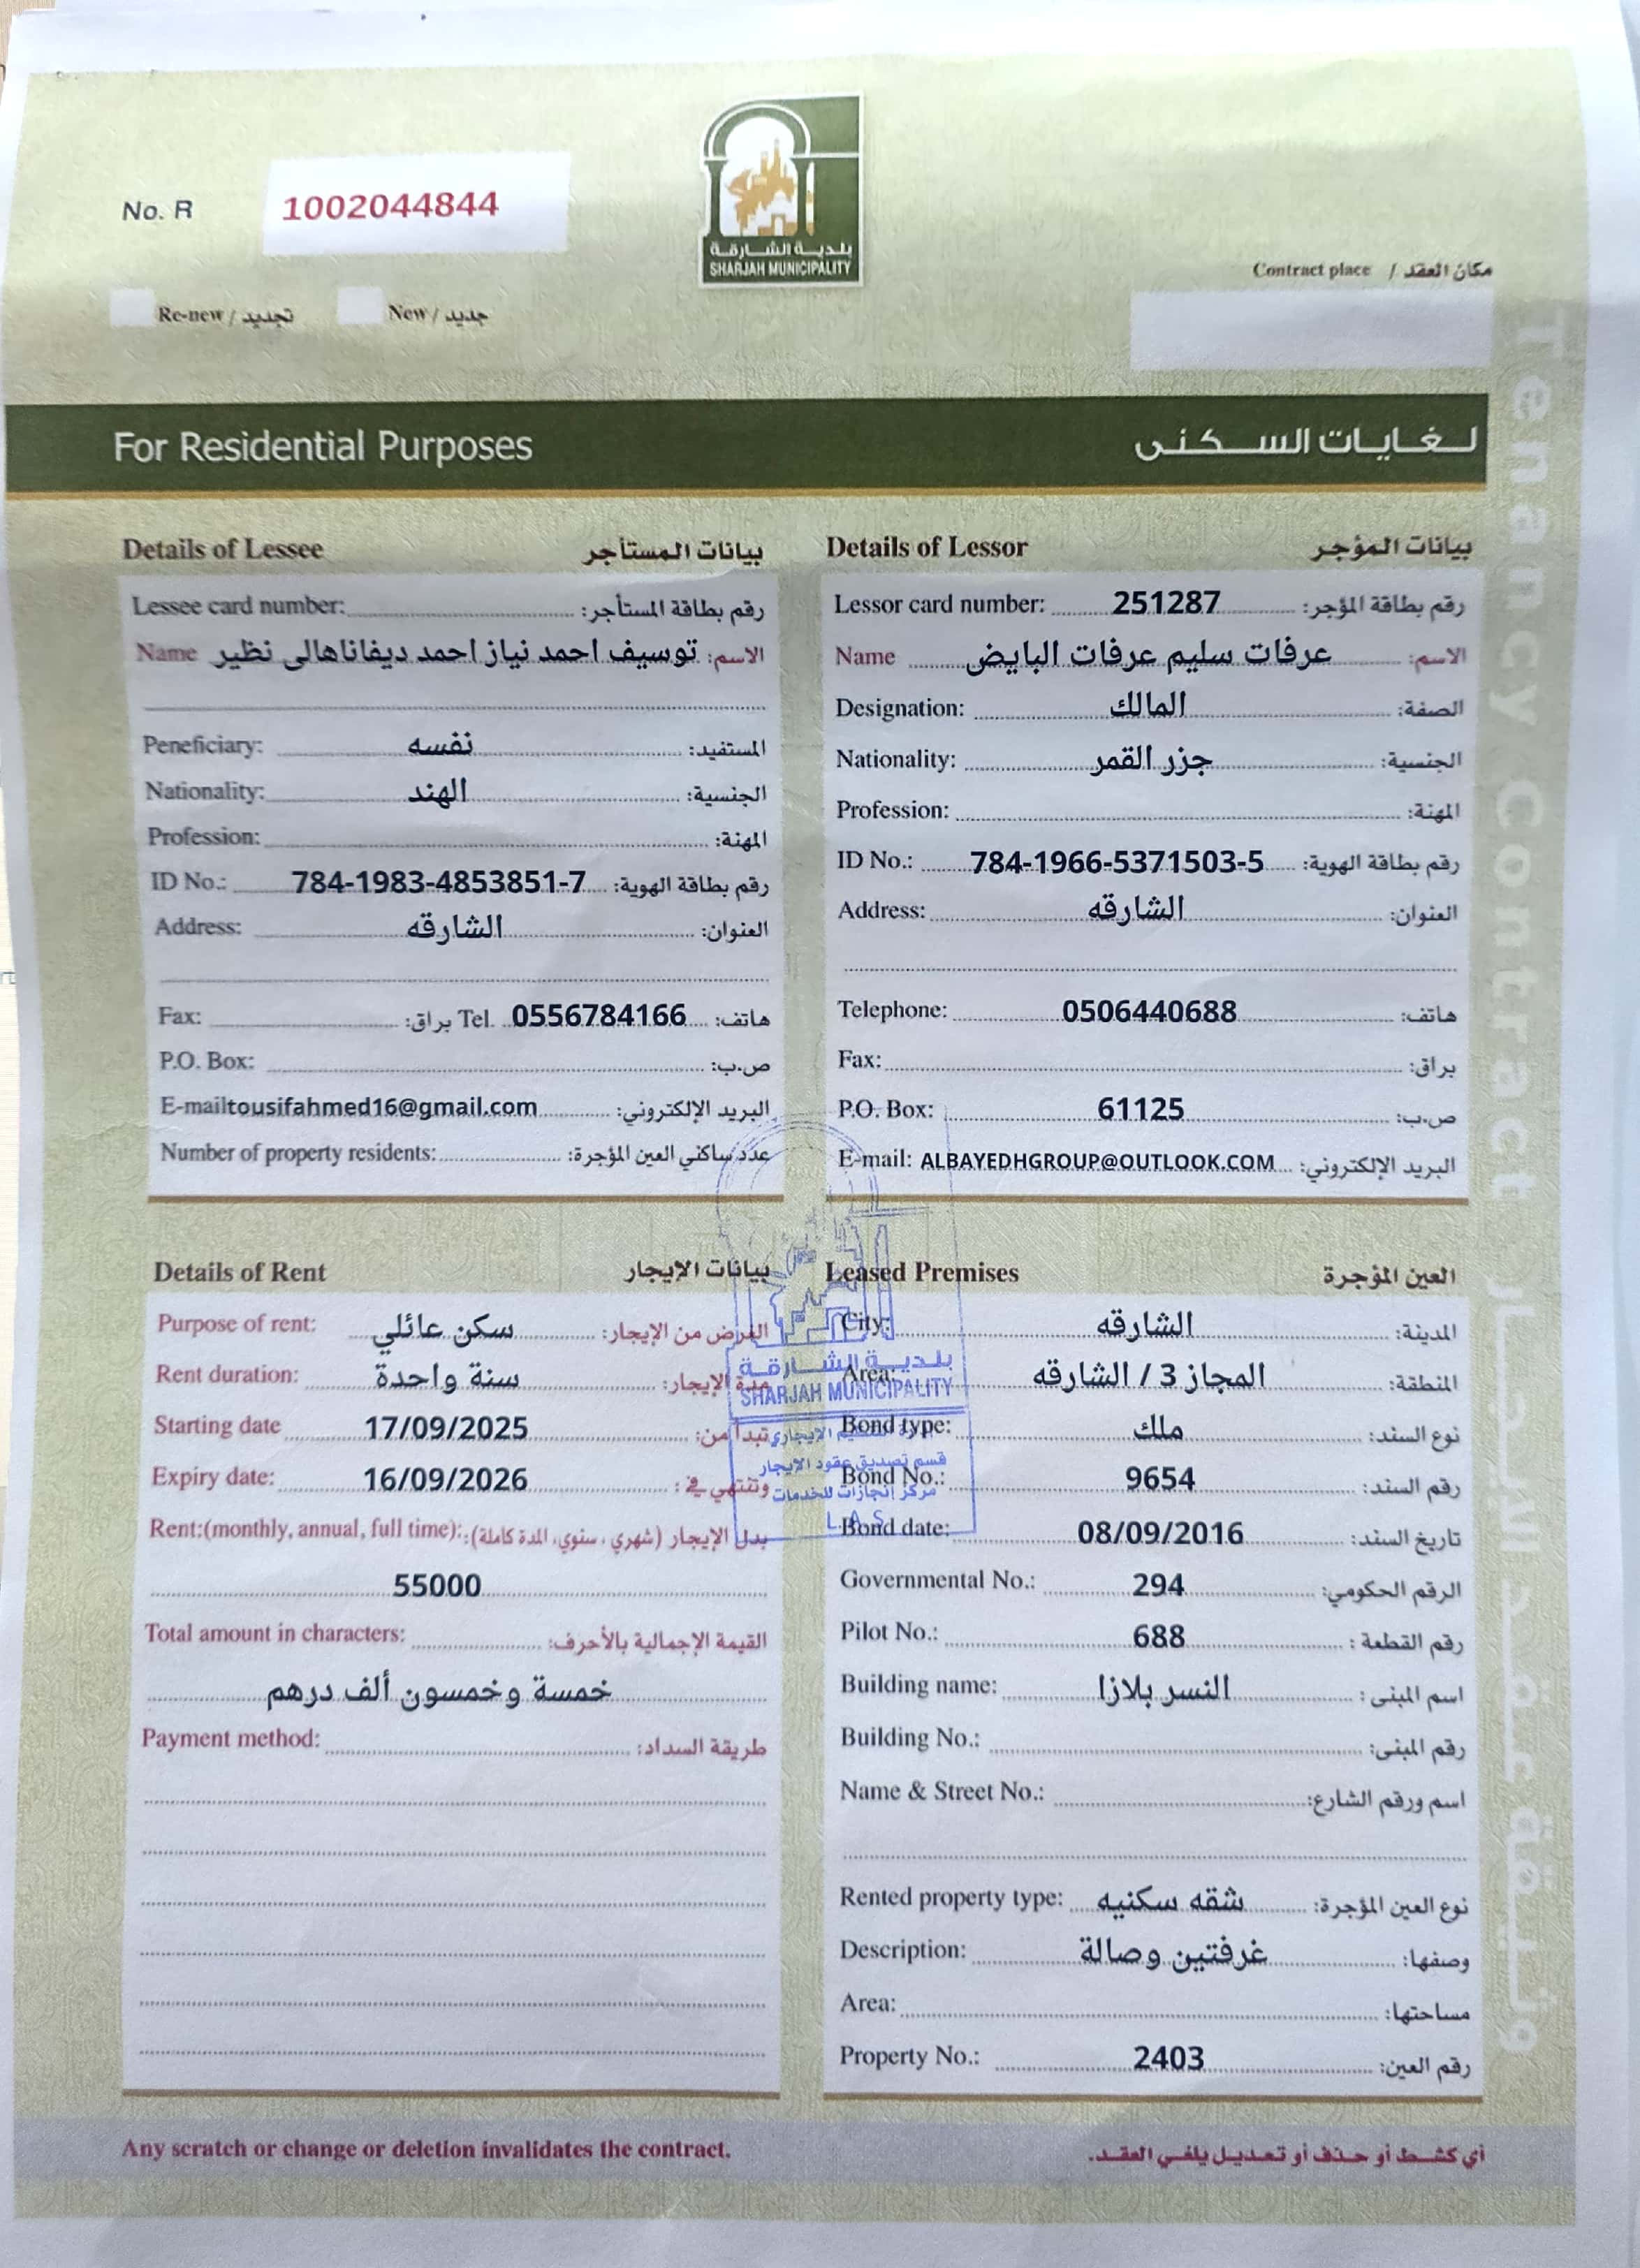 No. R 1002044844
بلدية الشارقة
SHARJAH MUNICIPALITY
Contract place / مكان العقد
Re-new / تجديد New / جديد
For Residential Purposes لغايات السكنى
Details of Lessee بيانات المستأجر
Lessee card number: رقم بطاقة المستأجر:
Name توسيف احمد نياز احمد ديفاناهالى نظير الاسم:
Peneficiary: نفسه المستفيد:
Nationality: الهند الجنسية:
Profession: المهنة:
ID No.: 784-1983-4853851-7 رقم بطاقة الهوية:
Address: الشارقه العنوان:
Fax: براق: Tel. 0556784166 هاتف:
P.O. Box: ص.ب:
E-mailtousifahmed16@gmail.com البريد الإلكتروني:
Number of property residents: عدد ساكني العين المؤجرة:
Details of Lessor بيانات المؤجر
Lessor card number: 251287 رقم بطاقة المؤجر:
Name عرفات سليم عرفات البايض الاسم:
Designation: المالك الصفة:
Nationality: جزر القمر الجنسية:
Profession: المهنة:
ID No.: 784-1966-5371503-5 رقم بطاقة الهوية:
Address: الشارقه العنوان:
Telephone: 0506440688 هاتف:
Fax: براق:
P.O. Box: 61125 ص.ب:
E-mail: ALBAYEDHGROUP@OUTLOOK.COM البريد الإلكتروني:
Details of Rent بيانات الإيجار
Purpose of rent: سكن عائلي الغرض من الإيجار:
Rent duration: سنة واحدة مدة الإيجار:
Starting date 17/09/2025 تبدأ من:
Expiry date: 16/09/2026 وتنتهي في:
Rent:(monthly, annual, full time): بدل الإيجار (شهري، سنوي، المدة كاملة):
55000
Total amount in characters: القيمة الإجمالية بالأحرف:
خمسة وخمسون ألف درهم
Payment method: طريقة السداد:
Leased Premises العين المؤجرة
City: الشارقه المدينة:
Area: المجاز 3 / الشارقه المنطقة:
Bond type: ملك نوع السند:
Bond No.: 9654 رقم السند:
Bond date: 08/09/2016 تاريخ السند:
Governmental No.: 294 الرقم الحكومي:
Pilot No.: 688 رقم القطعة :
Building name: النسر بلازا اسم المبنى :
Building No.: رقم المبنى:
Name & Street No.: اسم ورقم الشارع:
Rented property type: شقه سكنيه نوع العين المؤجرة:
Description: غرفتين وصالة وصفها:
Area: مساحتها:
Property No.: 2403 رقم العين:
بلدية الشارقة
SHARJAH MUNICIPALITY
قسم تصديق عقود الايجار
مركز إنجازات للخدمات
L.A.S
Any scratch or change or deletion invalidates the contract. أي كشط أو حذف أو تعديل يلغي العقد.
Tenancy Contract وثيقة عقد الإيجار